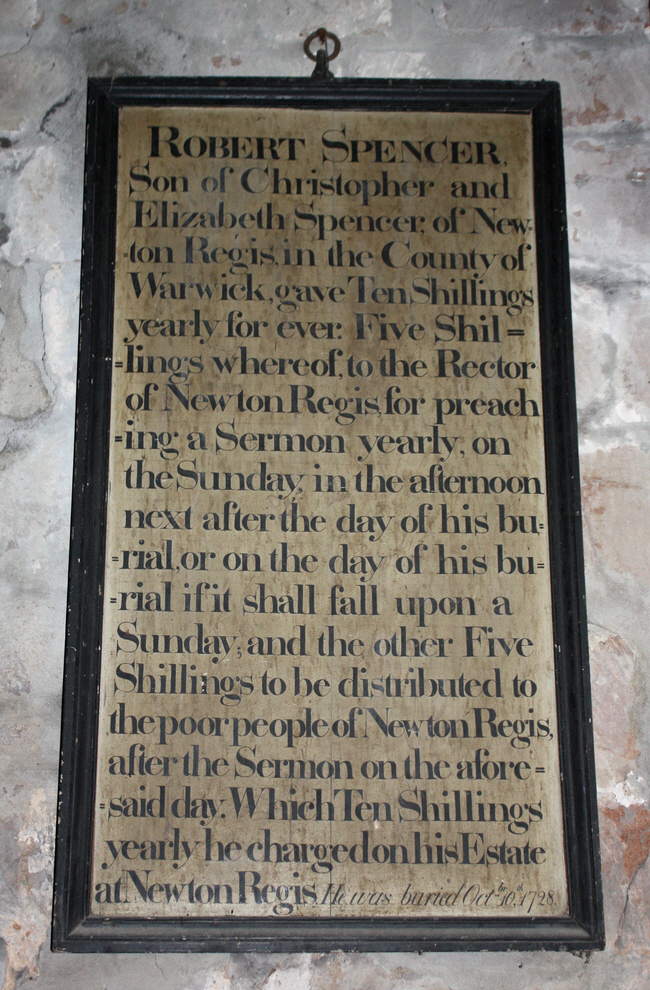 ROBERT SPENCER,
Son of Christopher and
Elizabeth Spencer, of New-
-ton Regis, in the County of
Warwick, gave Ten Shillings
yearly for ever: Five Shil=
=lings whereof, to the Rector
of Newton Regis, for preach
=ing a Sermon yearly, on
the Sunday, in the afternoon
next after the day of his bu=
=rial, or on the day of his bu=
=rial if it shall fall upon a
Sunday; and the other Five
Shillings to be distributed to
the poor people of Newton Regis,
after the Sermon on the afore=
=said day. Which Ten Shillings
yearly he charged on his Estate
at Newton Regis. He was buried Oct.br 10.th 1728.